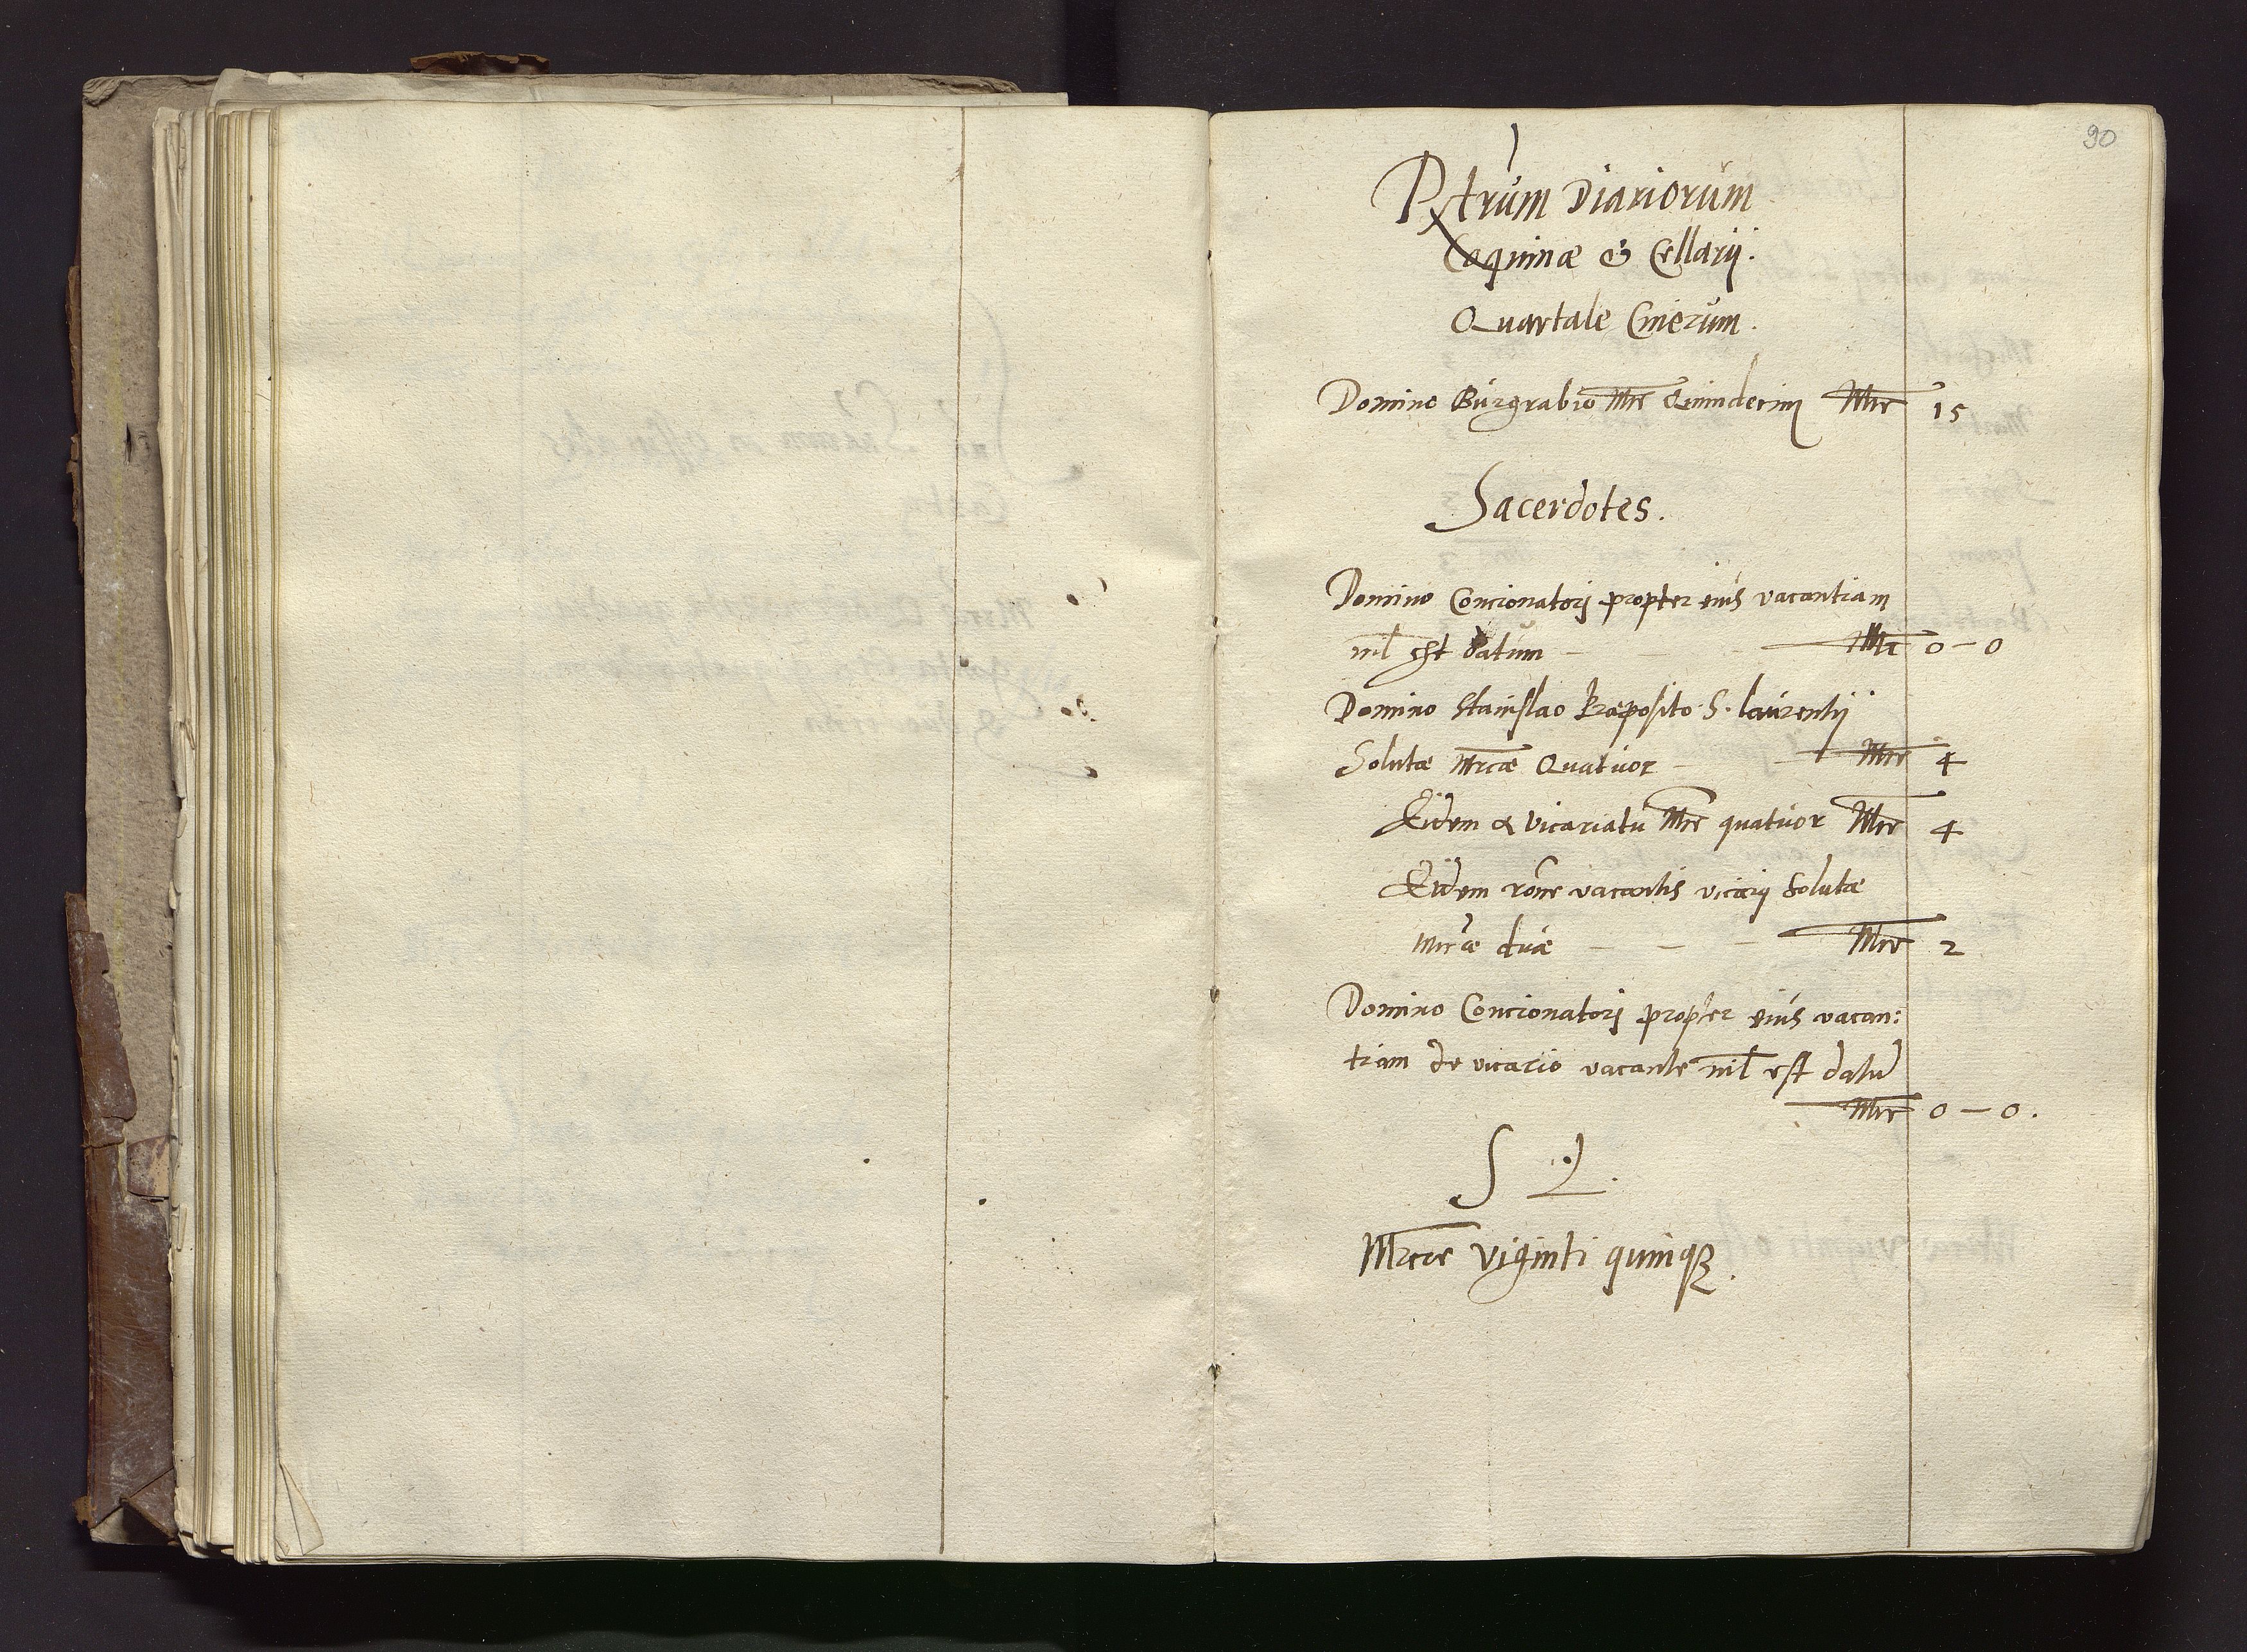 90
Rxtrum Diariorum
Coquinæ & Cellarij.
Quartale Cinerum.
Domino Burgrabio Mrc Quindecim Mrc 15
Sacerdotes.
Domino Concionatorj propter eius vacantiam
nil est datum - Mrc 0 - 0
Domino Stanislao Præposito S. laurentij
Solutæ Mrcæ Quatuor - - Mrc 4
Eidem ex vicariatu Mrc quatuor Mrc 4
Eidem rõne vacantis vicarij Solutæ
Mrcæ duæ - - - Mrc 2
Domino Concionatorj propter eius vacan:
tiam de vicario vacante nil est datũ
Mrc 0 - 0.
S
Mrcæ viginti quinqȝ.